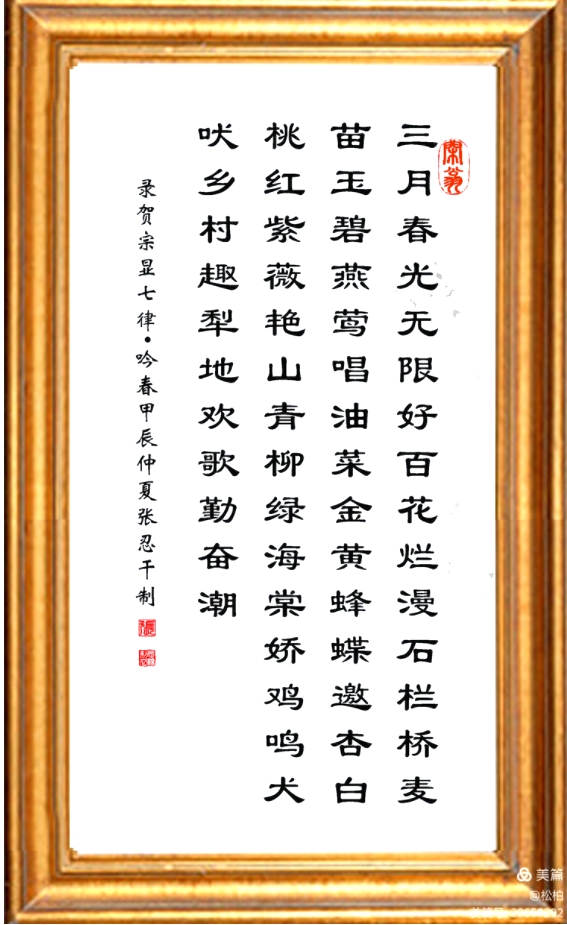 三月春光无限好百花烂漫石栏桥麦
苗玉碧燕莺唱油菜金黄蜂蝶邀杏白
桃红紫薇艳山青柳绿海棠娇鸡鸣犬
吠乡村趣犁地欢歌勤奋潮
录贺宗显七律•吟春甲辰仲夏张忍干制
美篇
@松柏